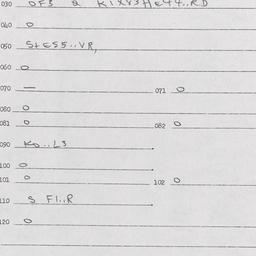 030 OF3 a K1XV3He44..RD
040 0
050 StES5..VR,
060 0
070 — 071 0
080 0
081 0 082 0
090 Ko..L3
100 0
101 0 102 0
110 S F1..R
120 0